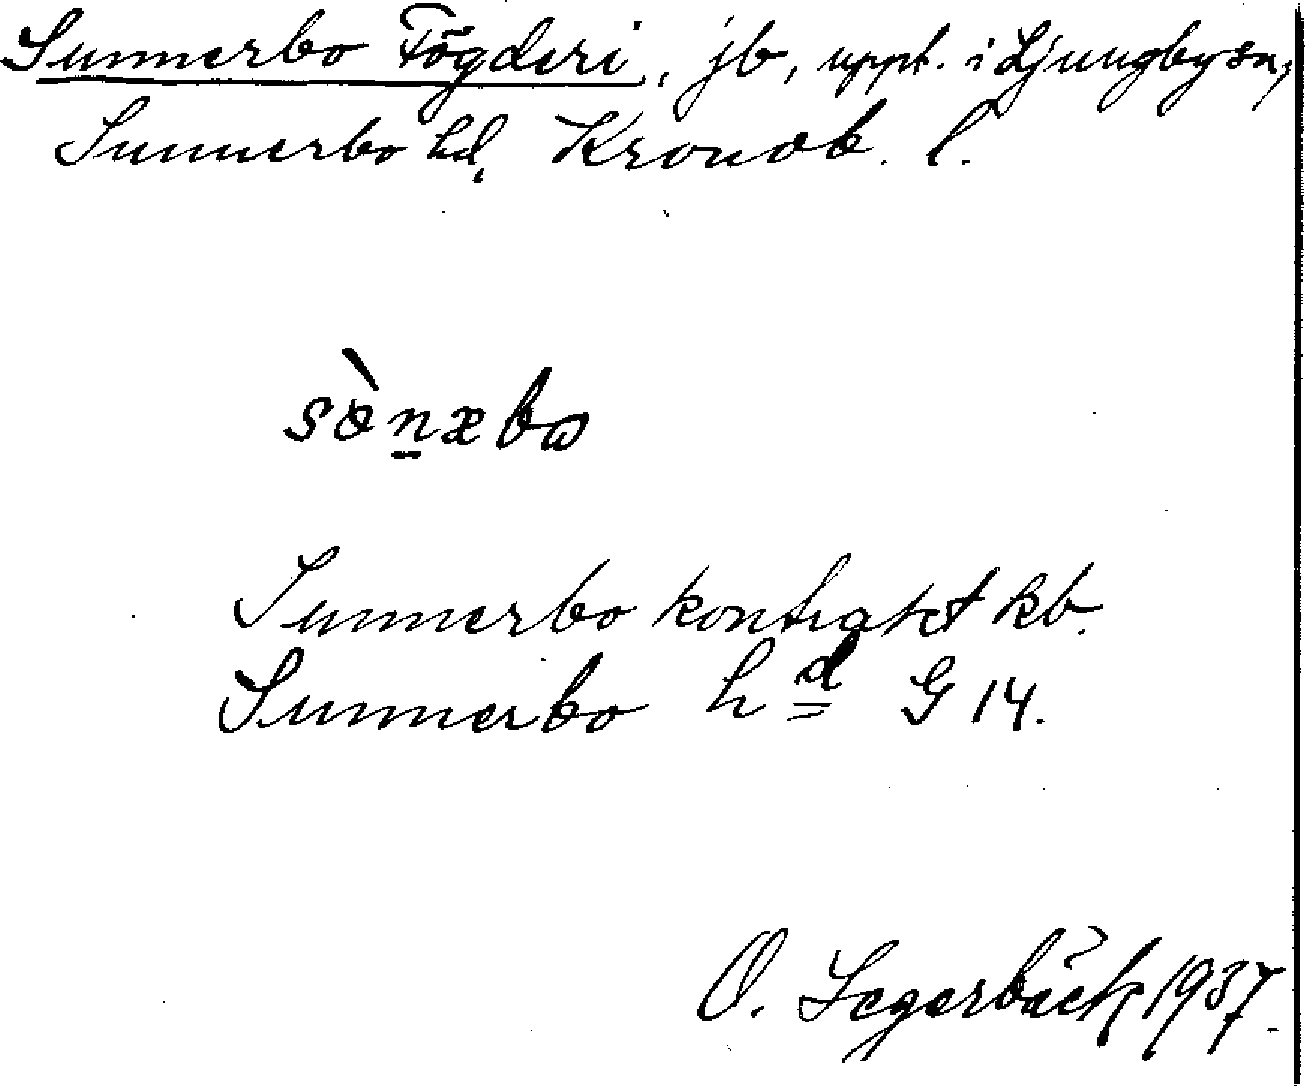 Sunnerbo Fögderi, jb, uppt. i Ljungby sn,
Sunnerbo hd, Kronob. l.
sònæbɷ
Sunnerbo kontrakt kb.
Sunnerbo hd G 14.
O. Segerbäck 1937.